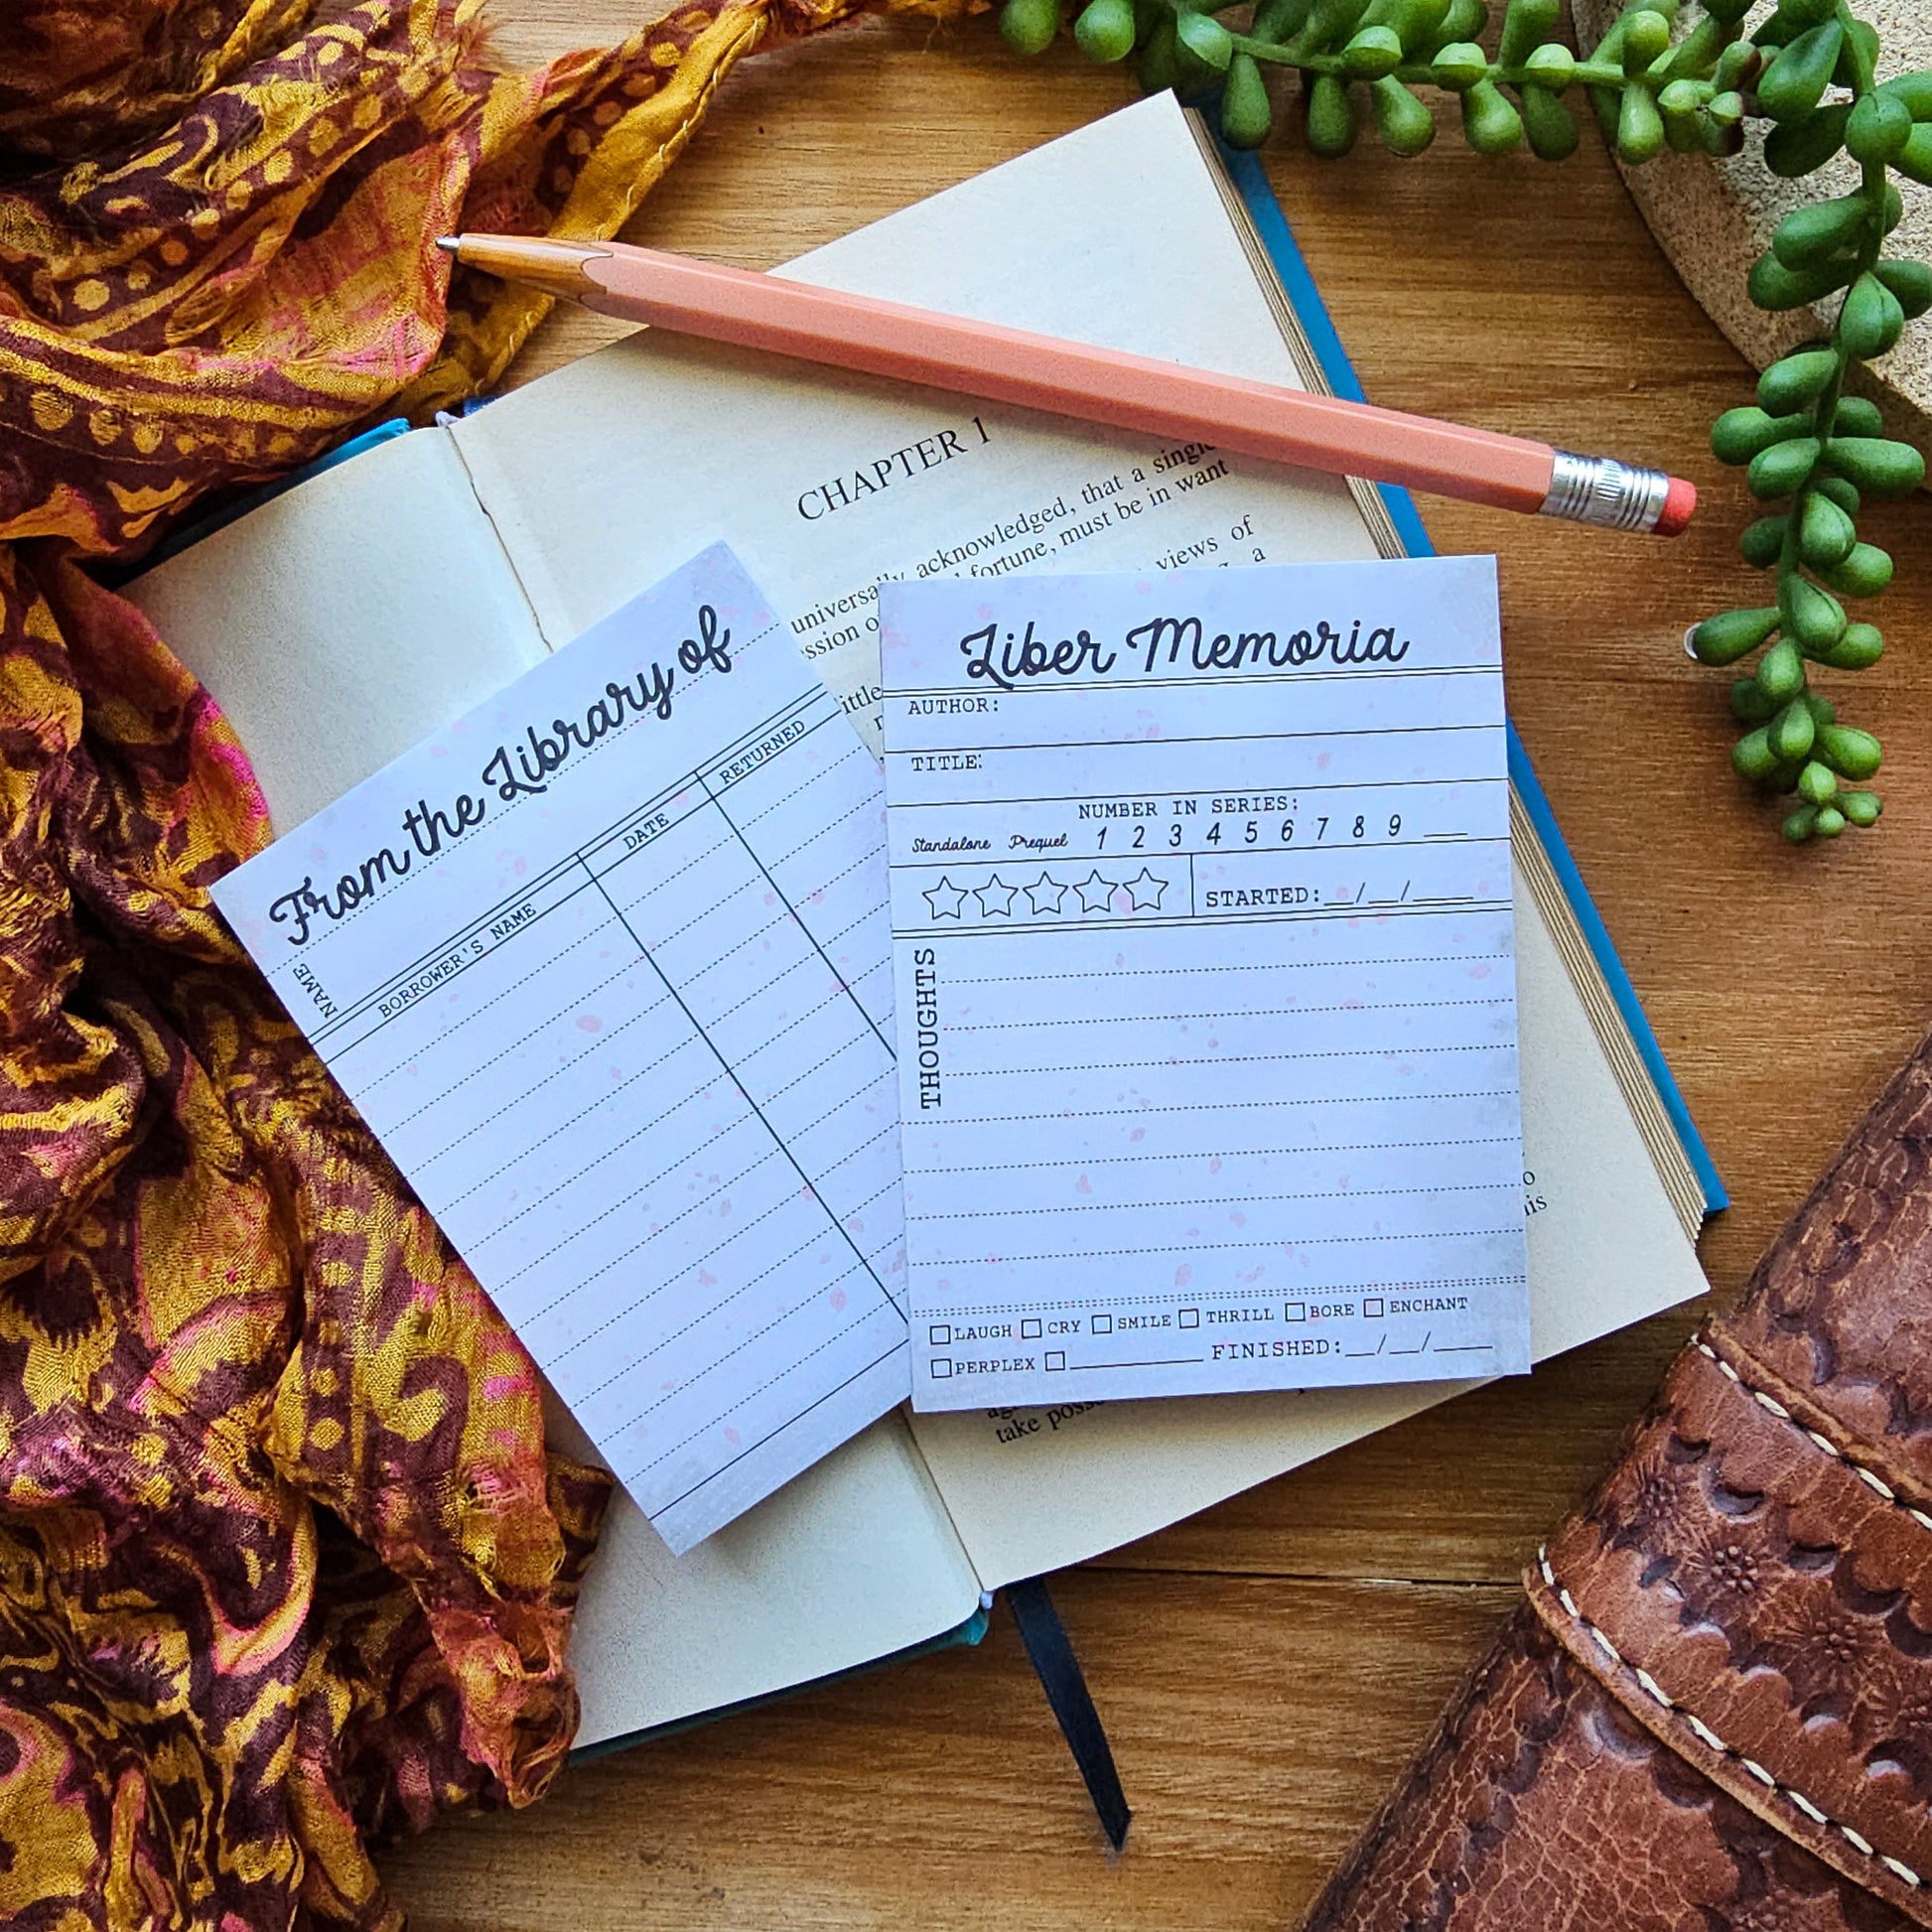 CHAPTER 1
acknowledged, that a
fortune, must be in want
views of
a
take
From the Library of
NAME
BORROWER'S NAME DATE RETURNED
Liber Memoria
AUTHOR:
TITLE:
NUMBER IN SERIES:
Standalone Prequel 1 2 3 4 5 6 7 8 9 ___
STARTED:__/__/____
THOUGHTS
LAUGH CRY SMILE THRILL BORE ENCHANT
PERPLEX FINISHED:__/__/____